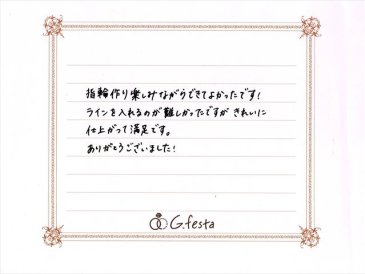 指輪作り楽しみながらできてよかったです!
ラインを入れるのが難しかったですが きれいに
仕上がって満足です。
ありがとうございました!
G.festa